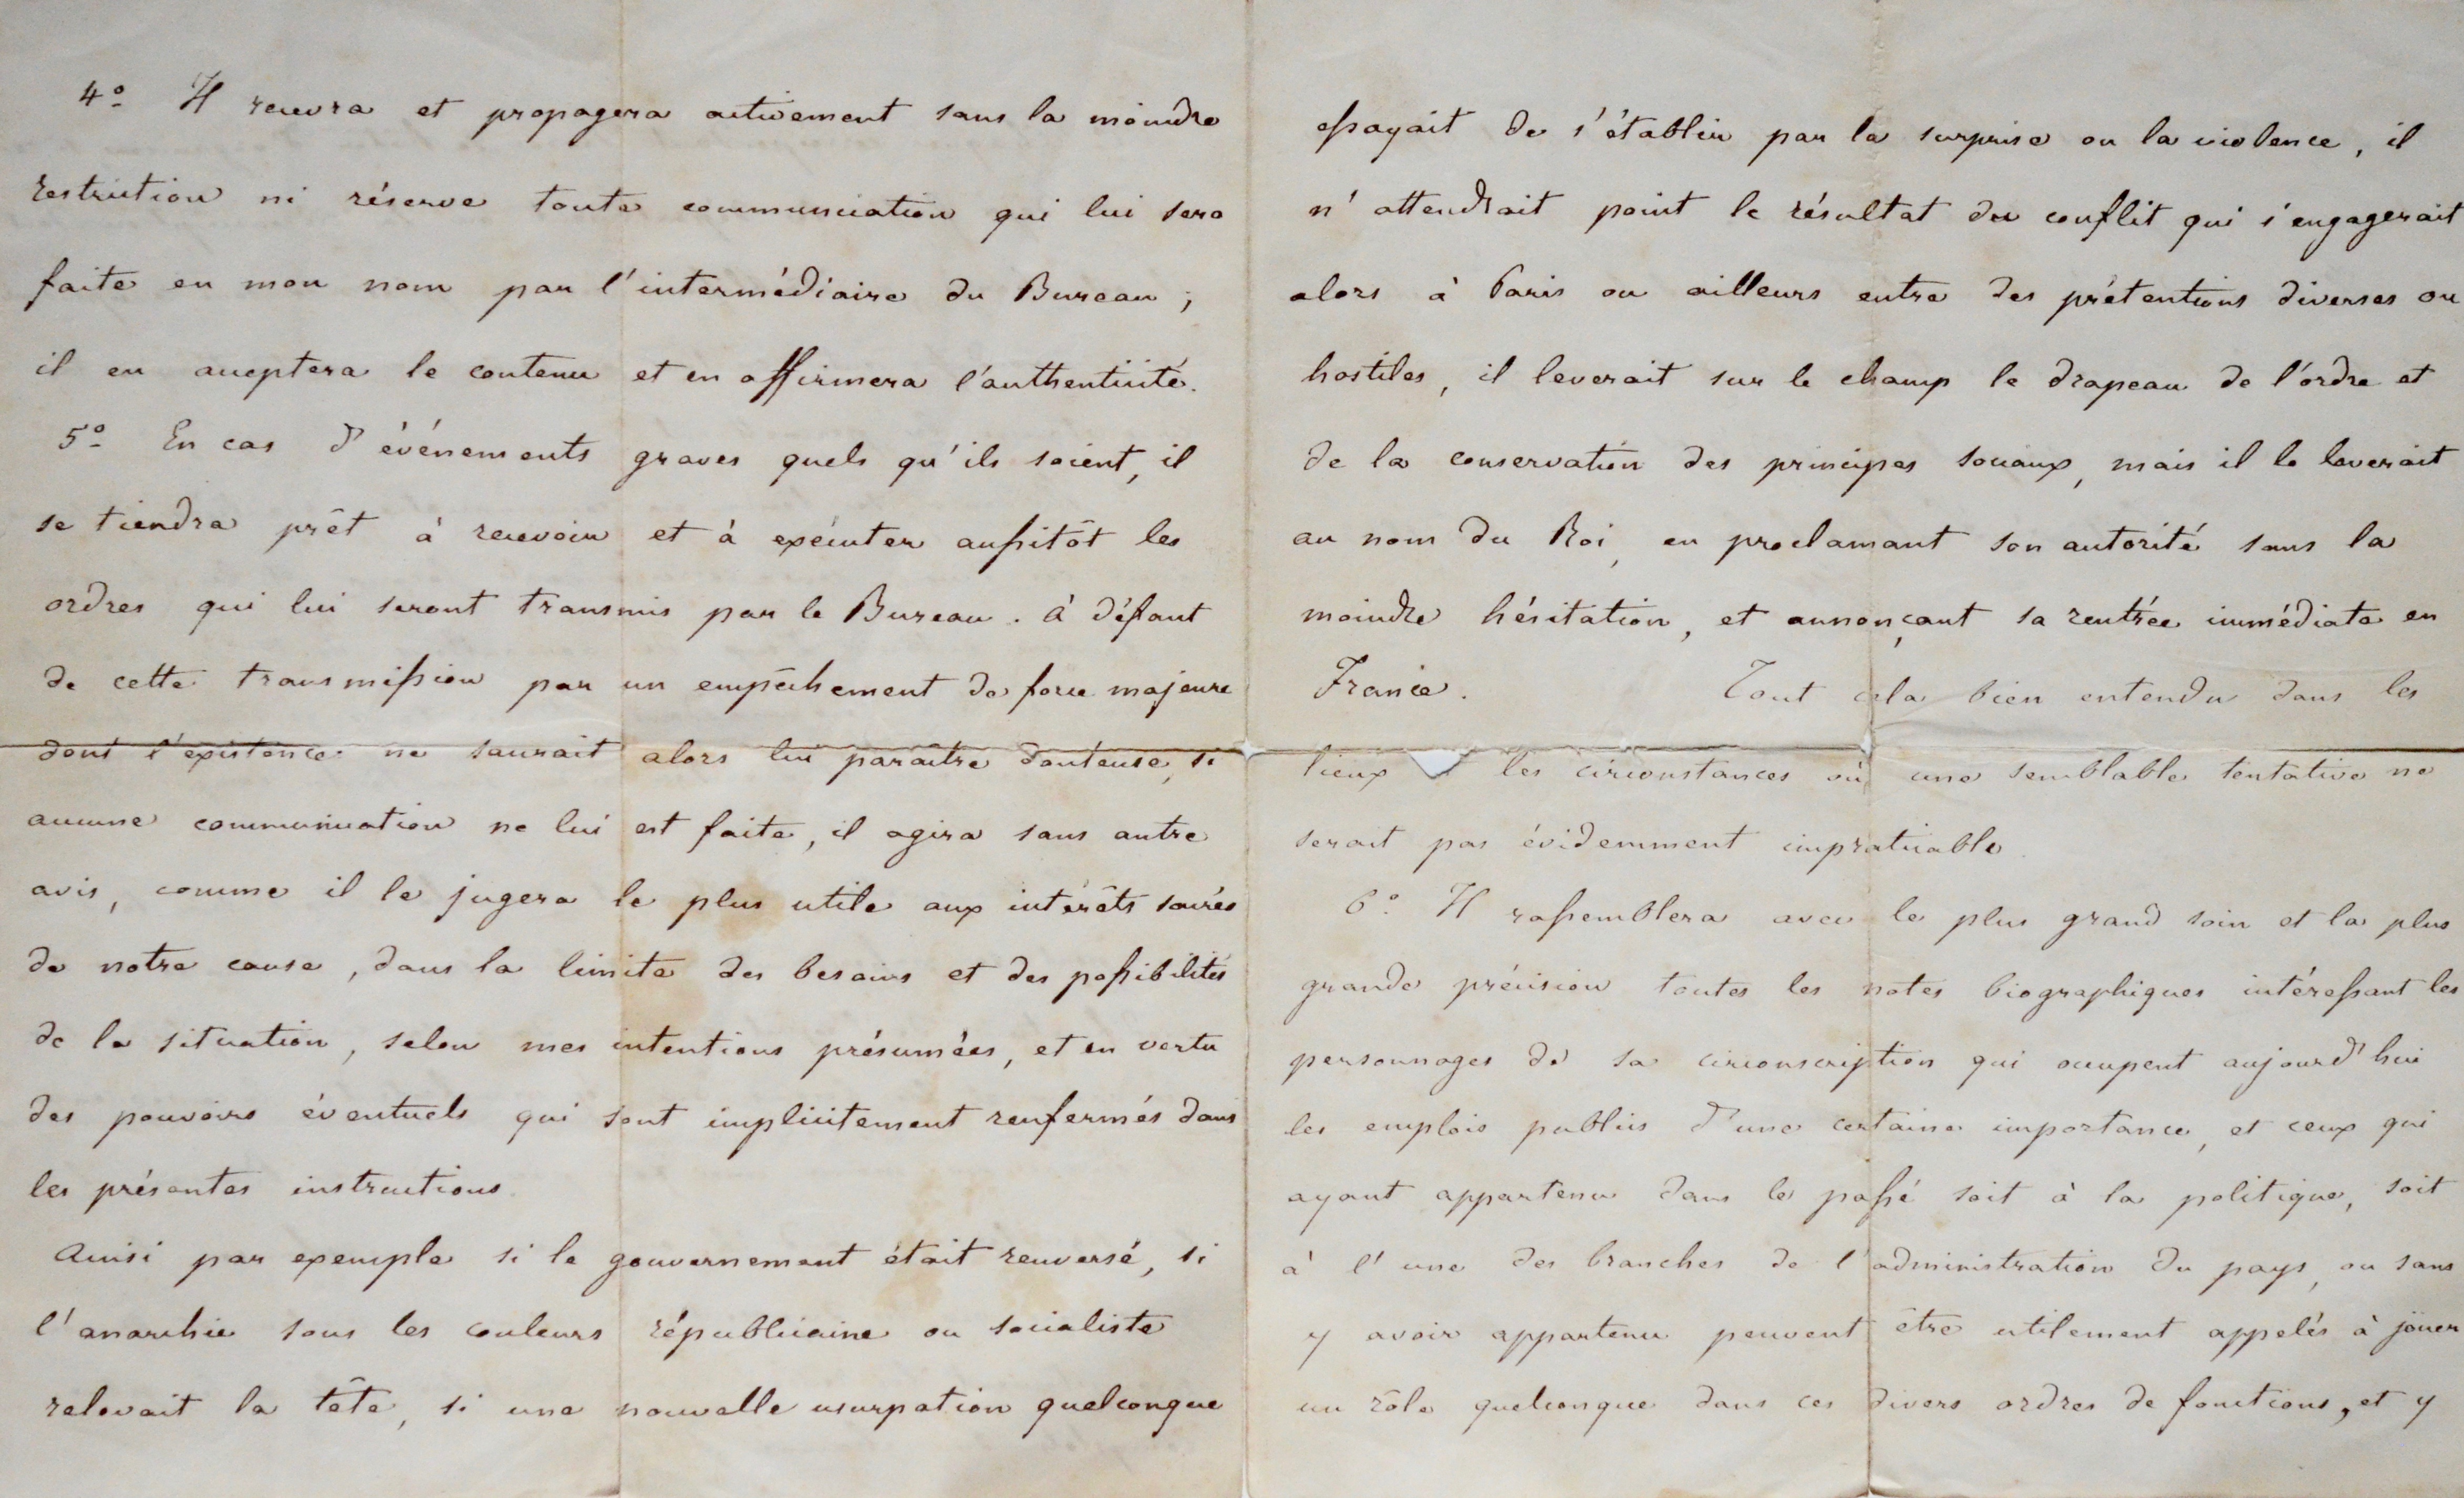 4º Il recevra et propagera activement sans la moindre
restriction ni réserve toute communication qui lui sera
faite en mon nom par l'intermédiaire du Bureau ;
il en acceptera le contenu et en affirmera l'authenticité.
5º En cas d'événements graves quels qu'ils soient, il
se tiendra prêt à recevoir et à exécuter aussitôt les
ordres qui lui seront transmis par le Bureau. à défaut
de cette transmission par un empêchement de force majeure
dont l'existence ne saurait alors lui paraître douteuse, si
aucune communication ne lui est faite, il agira sans autre
avis, comme il le jugera le plus utile aux intérêts sacrés
de notre cause, dans la limite des besoins et des possibilités
de la situation, selon mes intentions présumées, et en vertu
des pouvoirs éventuels qui sont implicitement renfermés dans
les présentes instructions.
Ainsi par exemple si le gouvernement était renversé, si
l'anarchie sous les couleurs républicaine ou socialiste
relevait la tête, si une nouvelle usurpation quelconque
essayait de s'établir par la surprise ou la violence, il
n'attendrait point le résultat du conflit qui s'engagerait
alors à Paris ou ailleurs entre des prétentions diverses ou
hostiles, il leverait sur le champ le drapeau de l'ordre et
de la conservation des principes sociaux, mais il le leverait
au nom du Roi, en proclamant son autorité sans la
moindre hésitation, et annonçant sa rentrée immédiate en
France. Tout cela bien entendu dans les
lieux les circonstances où une semblable tentative ne
serait pas évidemment impraticable.
6º Il rassemblera avec le plus grand soin et la plus
grande précision toutes les notes biographiques intéressant les
personnages de sa circonscription qui occupent aujourd'hui
les emplois publics d'une certaine importance, et ceux qui
ayant appartenu dans le passé soit à la politique, soit
à l'une des branches de l'administration du pays, ou sans
y avoir appartenu peuvent être utilement appelés à jouer
un rôle quelconque dans ces divers ordres de fonctions, et y